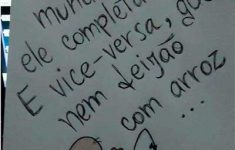 ele completa
E vice-versa, que
nem feijão
com arroz
...